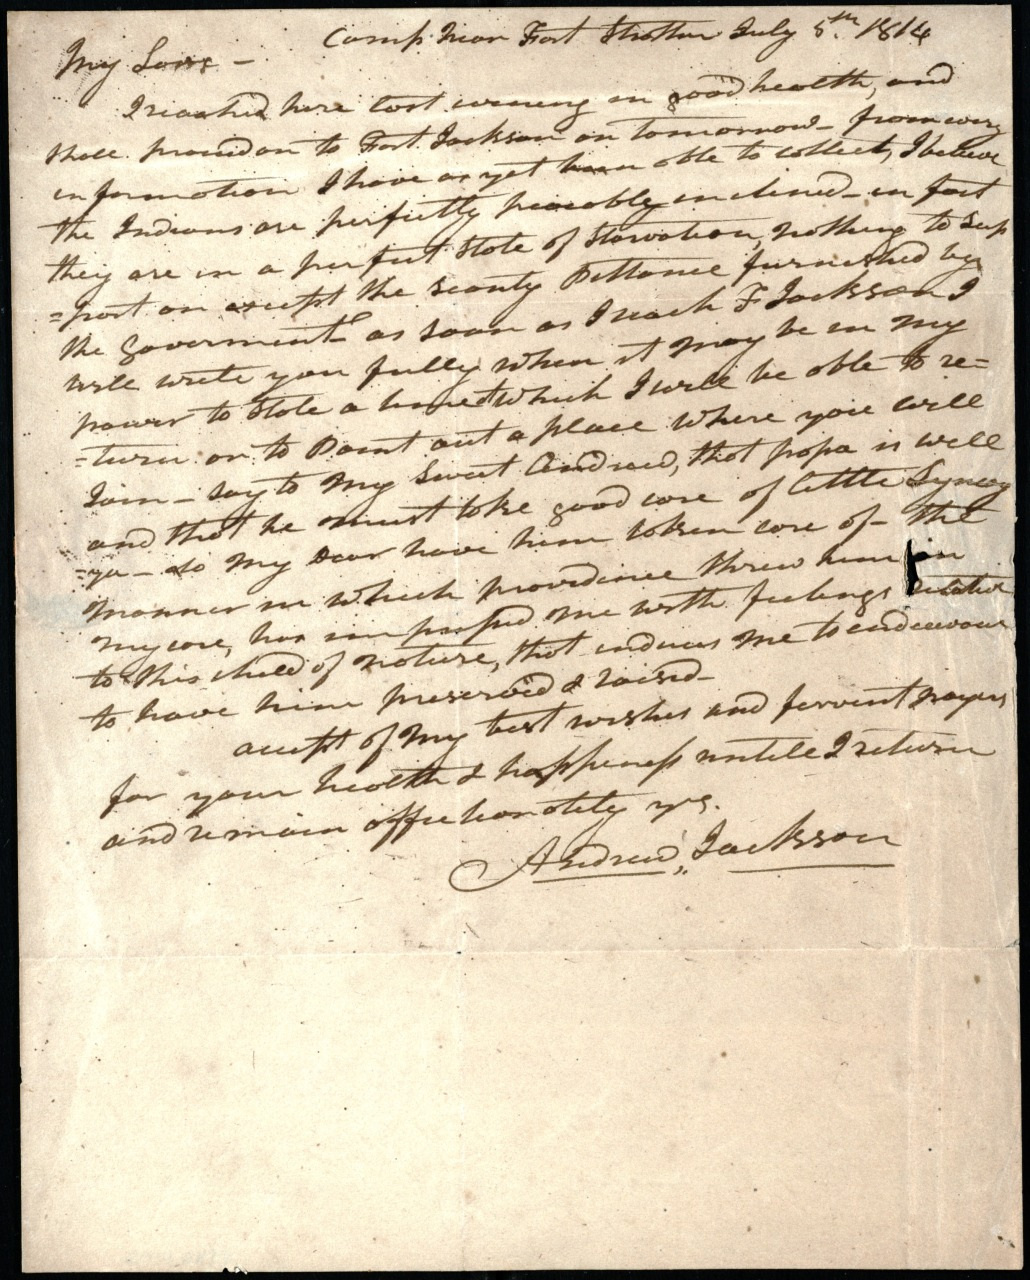 Camp Near Fort Strother July 5th. 1814
My Love –
I reached here last evening in good health, and
shall proceed on to Fort Jackson on tomorrow – from every
information I have as yet been able to collect, I believe
the Indians are perfectly peacably inclined – in fact
they are in a perfect State of Starvation, nothing to sup
=port on except the scanty Pittance furnished by
the Goverment – as soon as I reach F Jackson I
will write you fully when it may be in my
power to State a time at which I will be able to re=
=turn or to Point out a place where you will
Join – say to my Sweet Andrew, that papa is well
and that he must take good care of little Lyncoy
=ya – do my Dear have him taken care of – the
manner in which providence threw him in
my care, has impressed me with feelings relative
to this child of nature, that induces me to endeavour
to have him preserved & raised –
accept of my best wishes and fervent prayers
for your health & happiness untill I return
and remain affectionately yrs.
Andrew Jackson